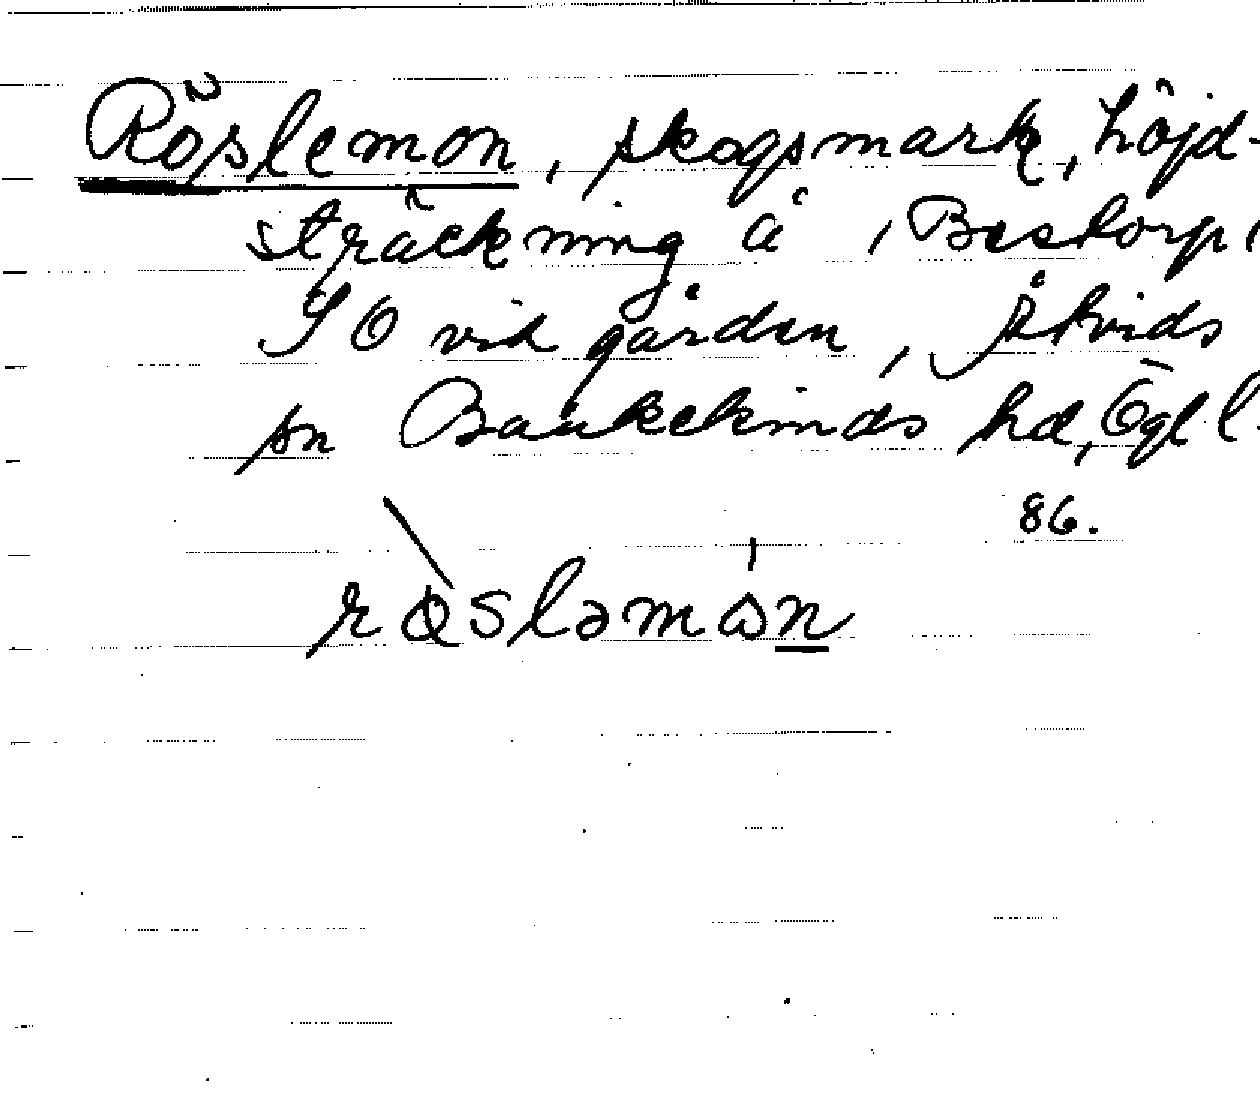 Röslemon, skogsmark, höjd-
sträckning å Bestorp,
SO vid gården, Åtvids
sn Bankekinds hd, Ög l
86.
røsləmɷn